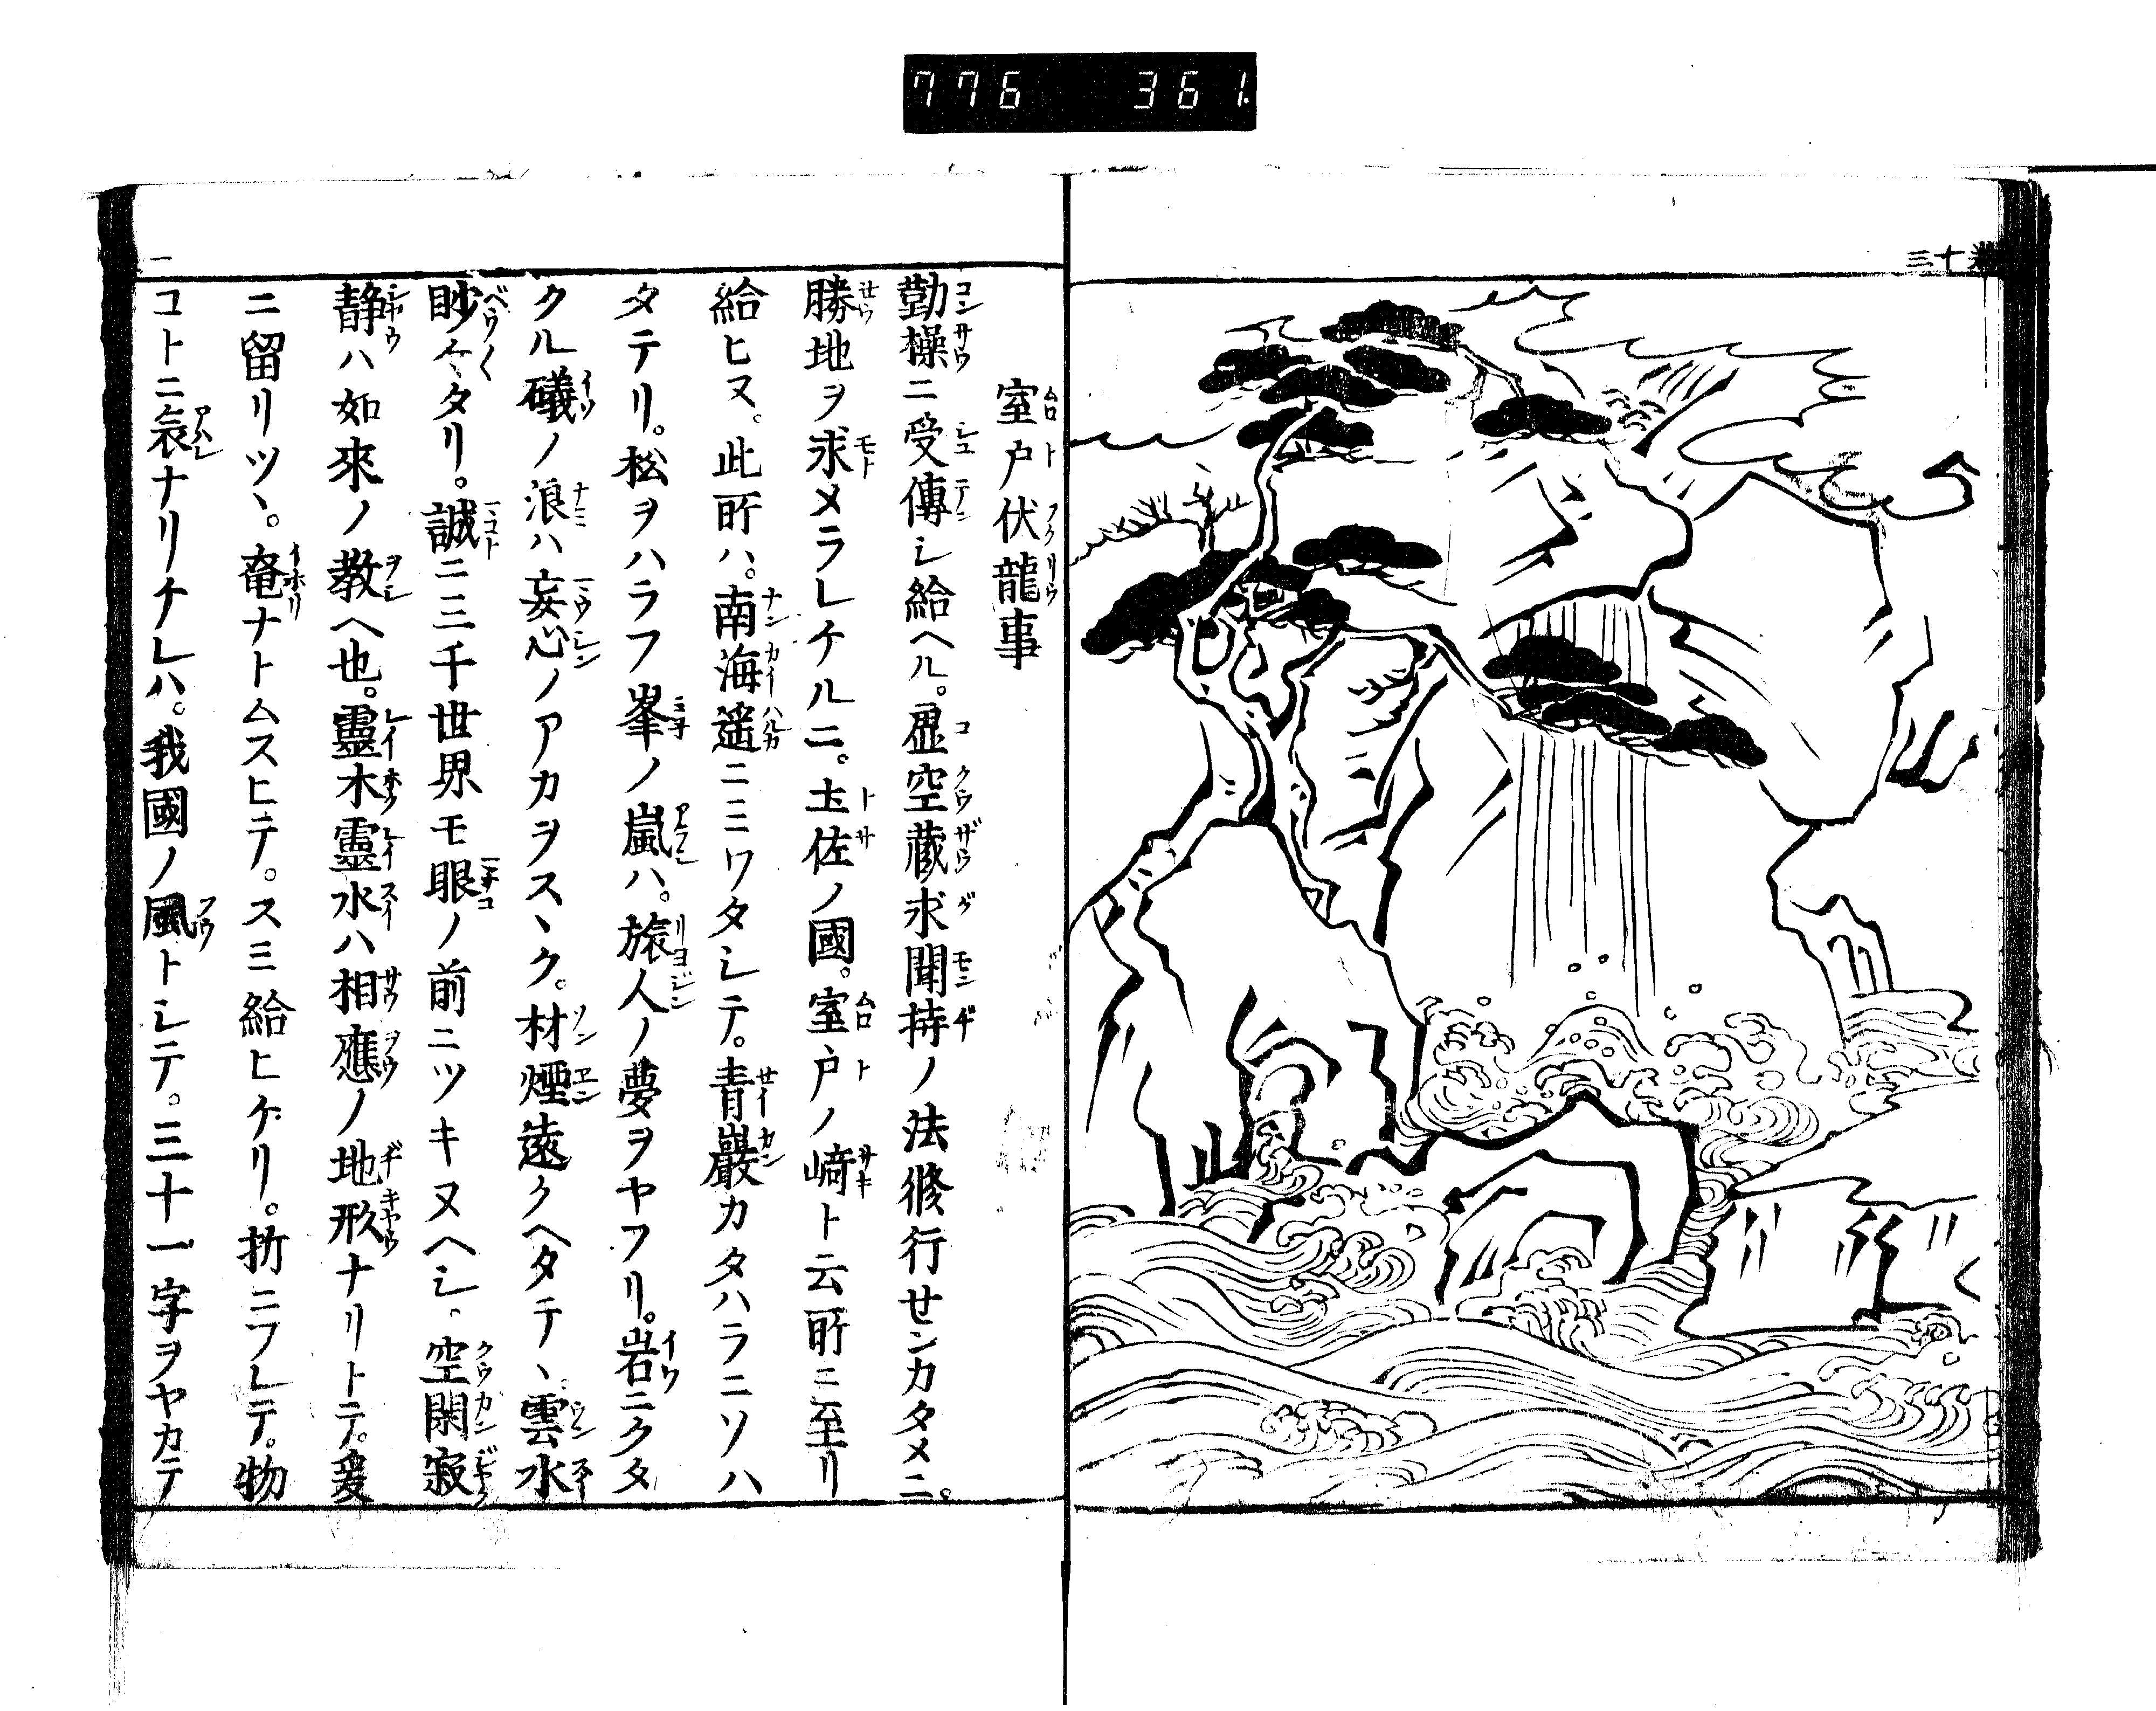 776 361
三十
室戸伏龍事
勤操ニ受傳シ給ヘル。虚空蔵求聞持ノ法修行センカタメニ。
勝地ヲ求メラレケルニ。土佐ノ國。室戸ノ﨑ト云所ニ至リ
給ヒヌ。此所ハ。南海遥ニミワタシテ。青巖カタハラニソハ
タテリ。松ヲハラフ峯ノ嵐ハ。旅人ノ夢ヲヤフリ。岩ニクタ
クル礒ノ浪ハ妄心ノアカヲスヽク。村煙遠クヘタテヽ雲水
眇々タリ。誠ニ三千世界モ眼ノ前ニツキヌヘシ。空閑寂
静ハ如來ノ教ヘ也。靈木靈水ハ相應ノ地形ナリトテ。爰
ニ留リツヽ。菴ナトムスヒテ。スミ給ヒケリ。折ニフレテ。物
コトニ哀ナリケレハ。我國ノ風トシテ。三十一字ヲヤカテ